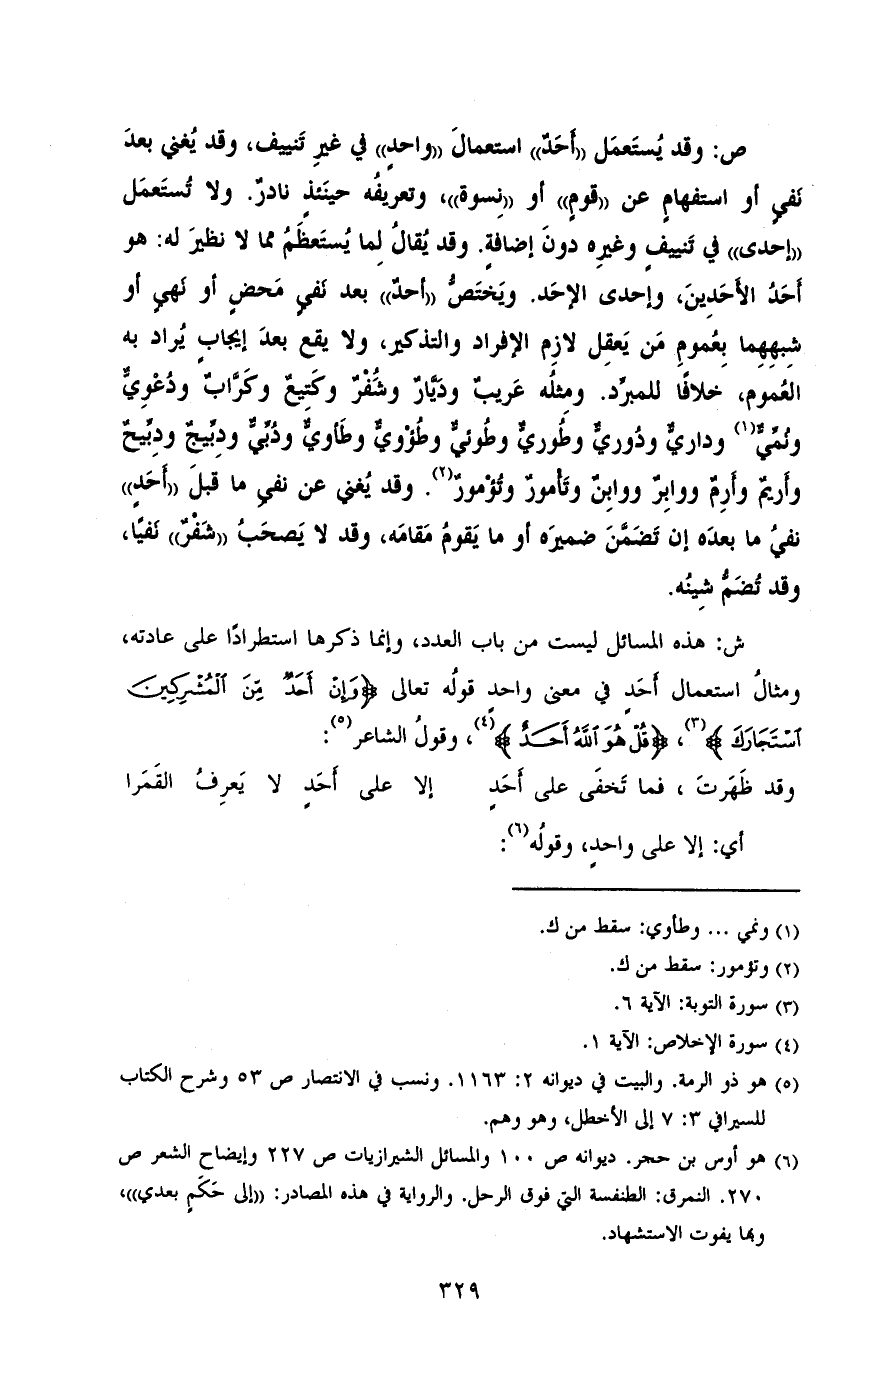 ص: وقد يُستَعمَل ((أَحَدٌ)) استعمالَ ((واحدٍ)) في غيرِ تَنييف، وقد يُغني بعدَ
نَفيٍ أو استفهامٍ عن ((قومٍ)) أو ((نِسوة))، وتعريفُه حينَئذٍ نادرٌ. ولا تُستَعمَل
((إحدى)) في تَنييفٍ وغيرِه دونَ إضافةٍ. وقد يُقالُ لِما يُستَعظَمُ مما لا نظيرَ له: هو
أَحَدُ الأَحَدِينَ، وإحدى الإحَد. ويَختَصُّ ((أحدٌ)) بعد نَفيٍ مَحضٍ أو نَهيٍ أو
شبهِهِما بِعُمومِ مَن يَعقِل لازِم الإفراد والتذكير، ولا يقع بعدَ إيجابٍ يُراد به
العُموم، خلافًا للمبرِّد. ومثلُه عَريبٌ ودَيَّارٌ وشُفْرٌ وكَتِيعٌ وكَرَّابٌ ودُعْوِيٌّ
ونُمِّيٌّ(١) وداريٌّ ودُوريٌّ وطُوريٌّ وطُوئيٌّ وطُؤْويٌّ وطَأويٌّ ودُبِّيٌّ ودبِّيجٌ ودبِّيحٌ
وأَريمٌ وأَرِمٌ ووابِرٌ ووابِنٌ وتَأمورٌ وتُؤْمورٌ(٢). وقد يُغني عن نفيِ ما قبلَ ((أَحَدٍ))
نفيُ ما بعدَه إن تَضَمَّنَ ضميرَه أو ما يَقومُ مَقامَه، وقد لا يَصحَبُ ((شَفْرٌ)) نَفيًا،
وقد تُضَمُّ شِينُه.
ش: هذه المسائل ليست من باب العدد، وإنما ذكرها استطرادًا على عادته،
ومثالُ استعمال أَحَدٍ في معنى واحدٍ قولُه تعالى ﴿وَإِنْ أَحَدٌ مِّنَ ٱلْمُشْرِكِينَ
ٱسْتَجَارَكَ﴾(٣)، ﴿قُلْ هُوَ ٱللَّهُ أَحَدٌ﴾(٤)، وقولُ الشاعر(٥):
وقد ظَهَرتَ ، فما تَخفَى على أَحَدٍ إلا على أَحَدٍ لا يَعرِفُ القَمَرا
أي: إلا على واحدٍ، وقولُه(٦):
(١) ونمي ... وطأوي: سقط من ك.
(٢) وتؤمور: سقط من ك.
(٣) سورة التوبة: الآية ٦.
(٤) سورة الإخلاص: الآية ١.
(٥) هو ذو الرمة. والبيت في ديوانه ٢: ١١٦٣. ونسب في الانتصار ص ٥٣ وشرح الكتاب
للسيرافي ٣: ٧ إلى الأخطل، وهو وهم.
(٦) هو أوس بن حجر. ديوانه ص ١٠٠ والمسائل الشيرازيات ص ٢٢٧ وإيضاح الشعر ص
٢٧٠. النمرق: الطنفسة التي فوق الرحل. والرواية في هذه المصادر: ((إلى حَكَمٍ بعدي))،
وبها يفوت الاستشهاد.
٣٢٩